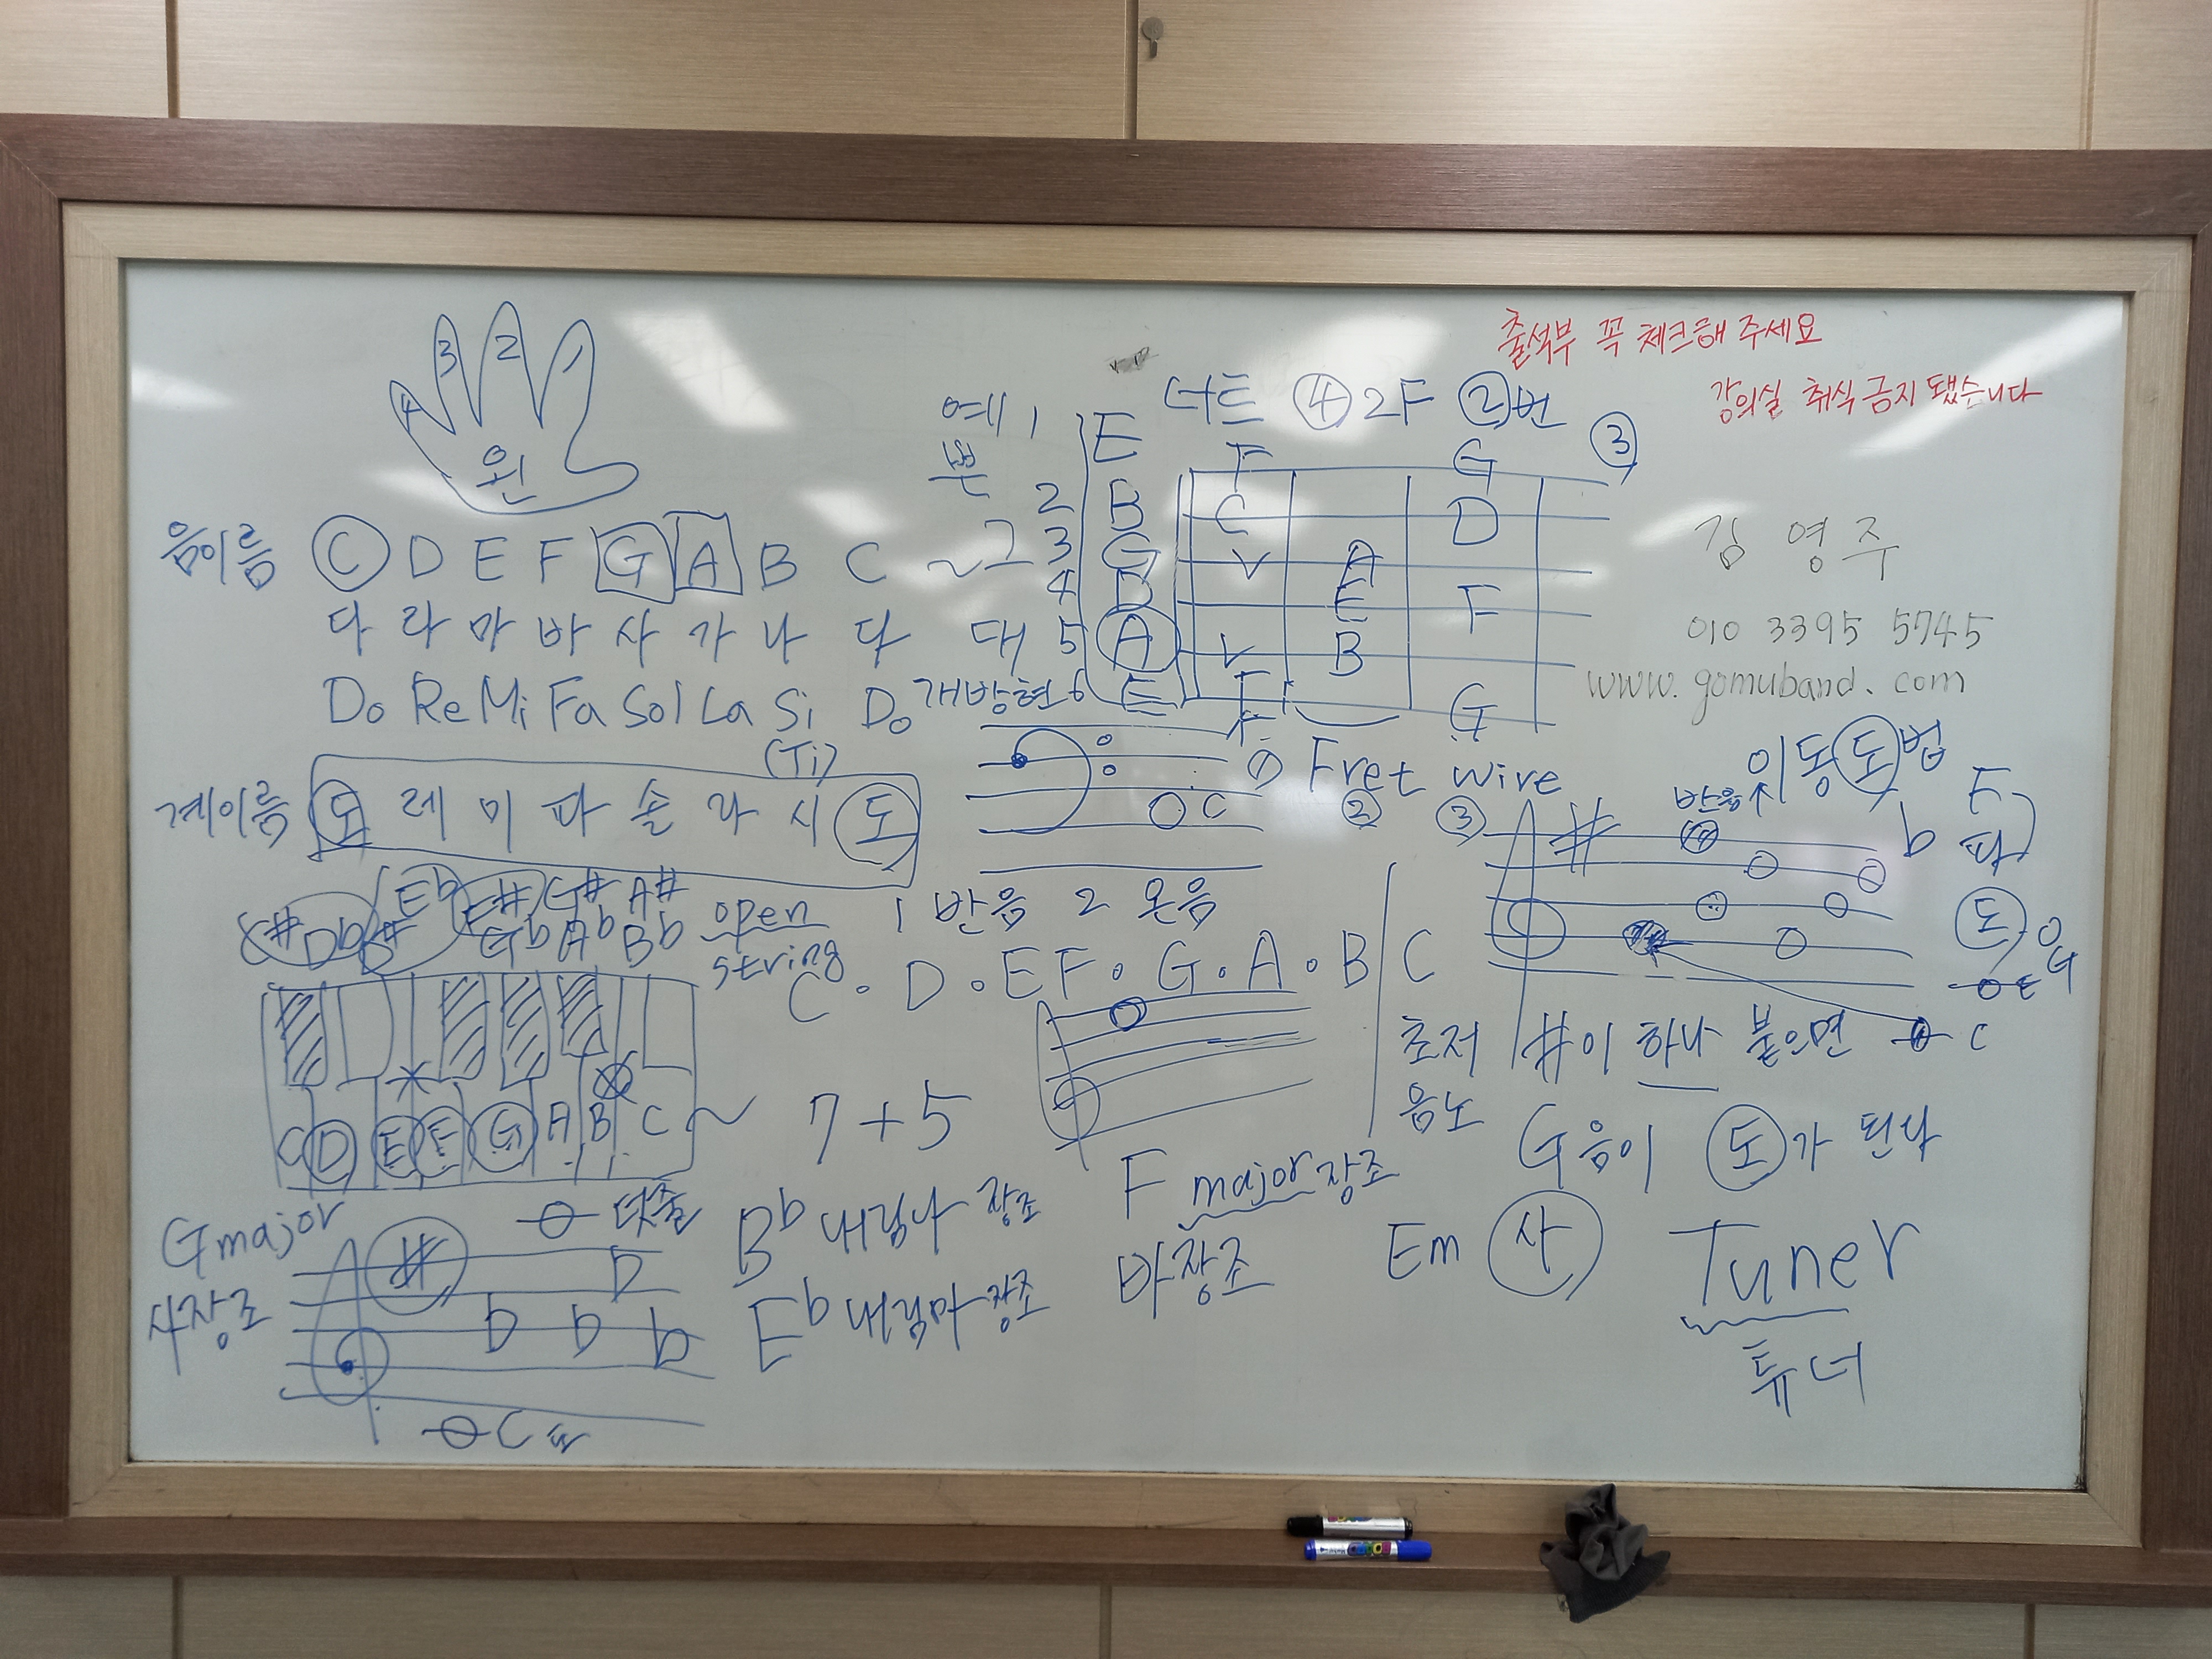 출석부 꼭 체크해 주세요
강의실 취식 금지 됐습니다
3 2 1
4
왼
예 1 E 너트 ④ 2F ②번
쁜 F G ③
2 B C D
음이름 C D E F G A B C ~ 그 3 G V A
4 D E F
다 라 마 바 사 가 나 다 대 5 A V B
Do Re Mi Fa Sol La Si Do 개방현 6 E F G
(Ti)
김 영 주
010 3395 5745
www.gomuband.com
계이름 도 레 미 파 솔 라 시 도
C
① Fret wire
② ③
이동도법
반음
# b F
파
도 G
E
C
C# Db D# Eb F# Gb G# Ab A# Bb
open
string
1 반음 2 온음
C . D . E F . G . A . B C
C D E F G A B C ~
7 + 5
초저
음노
#이 하나 붙으면
G음이 도가 된다
G major
사장조
# 덧줄
D
b b b
C 도
Bb 내림나 장조
Eb 내림마 장조
F major 장조
바장조
Em 사
Tuner
튜너